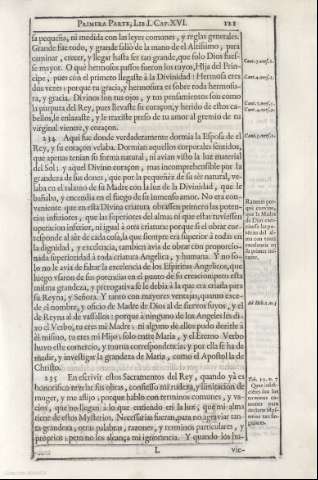 PRIMERA PARTE, LIB. I. CAP. XVI. 121
sa pequeña, ni medida con las leyes comunes, y reglas generales.
Grande fue todo, y grande salió de la mano de el Altissimo, para
caminar, crecer, y llegar hasta ser tan grande, que solo Dios fues-
se mayor. O que hermosos passos fueron los tuyos, Hija del Prin-
cipe, pues con el primero llegaste à la Divinidad! Hermosa eres
dos vezes: porque tu gracia, y hermosura es sobre toda hermosu-
ra, y gracia. Divinos son tus ojos, y tus pensamientos son como
la purpura del Rey, pues llevaste su coraçon, y herido de estos ca-
bellos, le enlazaste, y le traxiste preso de tu amor al gremio de tu
virginal vientre, y coraçon.
234 Aqui fue donde verdaderamente dormia la Esposa de el
Rey, y su coraçon velaba. Dormian aquellos corporales sentidos,
que apenas tenian su forma natural, ni avian visto la luz material
del Sol: y aquel Divino coraçon, mas incomprehensible por la
grandeza de sus dones, que por la pequeñez de su sér natural, ve-
laba en el talamo de su Madre con la luz de la Divinidad, que le
bañaba, y encendia en el fuego de su inmenso amor. No era con-
veniente que en esta Divina criatura obrassen primero las poten-
cias inferiores, que las superiores del alma, ni que estas tuviessen
operacion inferior, ni igual à otra criatura: porque si el obrar cor-
responde al sér de cada cosa, la que siempre era superior à todas en
la dignidad, y excelencia, tambien avia de obrar con proporcio-
nada superioridad à toda criatura Angelica, y humana. Y no so-
lo no le avia de faltar la excelencia de los Espiritus Angelicos, que
luego usaron de sus potencias en el punto de su creacion: pero esta
misma grandeza, y prerogativa se le debia à la que era criada para
su Reyna, y Señora. Y tanto con mayores ventajas, quanto exce-
de el nombre, y oficio de Madre de Dios al de siervos suyos, y el
de Reyna al de vassallos: porque à ninguno de los Angeles les di-
xo el Verbo, tu eres mi Madre: ni alguno de ellos pudo dezirle à
él mismo, tu eres mi Hijo: solo entre Maria, y el Eterno Verbo
huvo este comercio, y mutua correspondencia: y por ella se ha de
medir, y investigar la grandeza de Maria, como el Apostol la de
Christo.
235 En escrivir estos Sacramentos del Rey, quando yà es
honorifico revelar sus obras, confiesso mi rudeza, y limitacion de
muger, y me aflijo, porque hablo con terminos comunes, y va-
cios, que no llegan à lo que entiendo en la luz, que mi alma
tiene de estos Mysterios. Necessarias fueran, para no agraviar tan-
ta grandeza, otras palabras, razones, y terminos particulares, y
proprios: pero no los alcança mi ignorancia. Y quando los hu-
L
Vie-